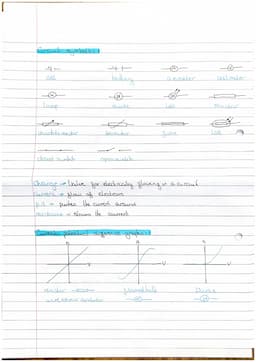 Circuit symbols:
cell battery ammeter voltmeter
lamp diode LED resistor
variable resistor thermistor fuse LDR
closed switch open switch
Charge → Unit for electricity flowing in a circuit
Current → flow of electrons
p.d → pushes the current around
resistance → slows the current
V V V
resistor filament bulb Diode